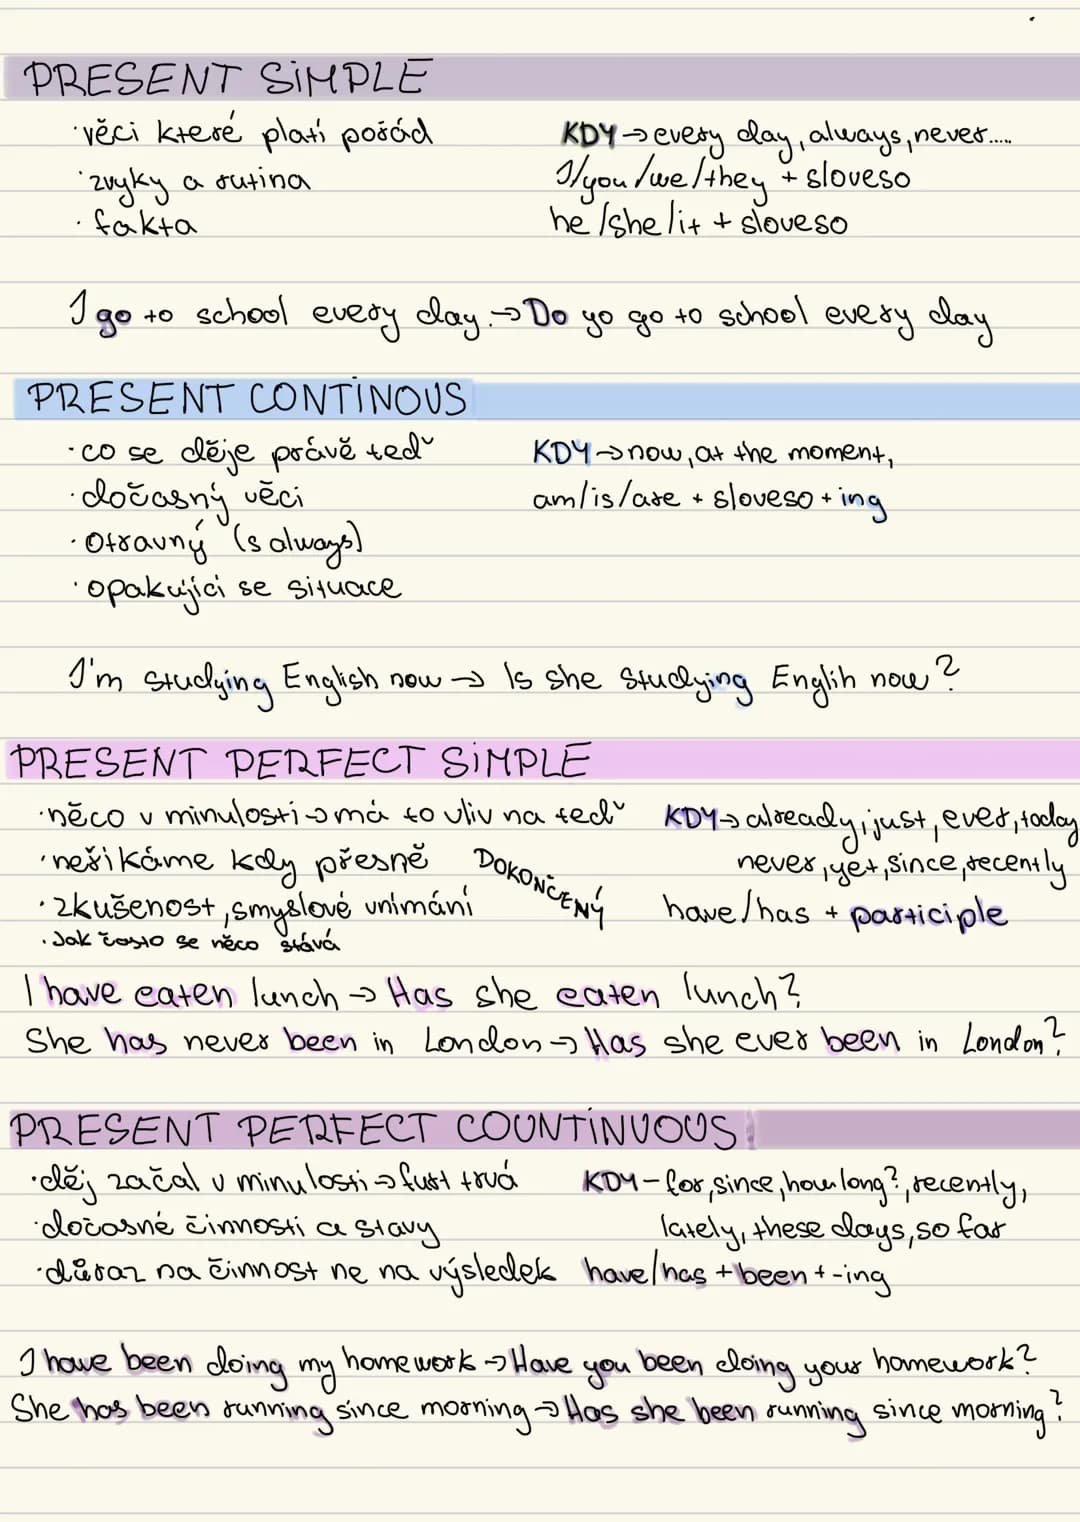 PRESENT SIMPLE
·věci které platí pořád KDY→every day, always, never.....
·zvyky a rutina I/you/we/they + sloveso
·fakta he/she/it + sloveso
I go to school every day.→Do yo go to school every day
PRESENT CONTINOUS
·co se děje právě teď KDY→now, at the moment,
·dočasný věci am/is/are + sloveso + ing
·otravný (s always)
·opakující se situace
I'm studying English now→ Is she studying Englih now?
PRESENT PERFECT SIMPLE
·něco v minulosti→má to vliv na teď KDY→already, just, ever, today
·neříkáme kdy přesně DOKONČENÝ never, yet, since, recently
·zkušenost, smyslové vnímání have/has + participle
·Jak často se něco stává
I have eaten lunch→Has she eaten lunch?
She has never been in London→Has she ever been in London?
PRESENT PERFECT COUNTINUOUS
·děj začal v minulosti→furt trvá KDY-for, since, how long?, recently,
·dočasné činnosti a stavy lately, these days, so far
·důraz na činnost ne na výsledek have/has + been + -ing
I have been doing my homework→Have you been doing your homework?
She has been running since morning→Has she been running since morning?